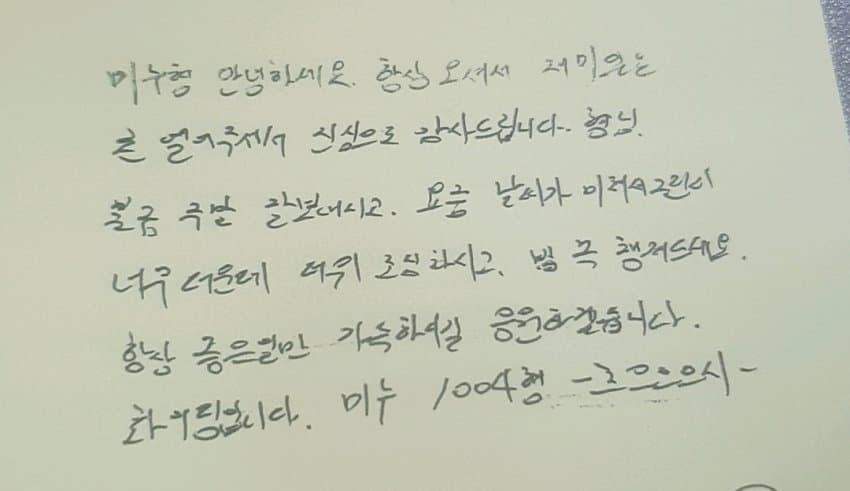 미누형 안녕하세요. 항상 오셔서 재미있는
촌 열어주셔서 진심으로 감사드립니다. 형님.
불금 주말 잘보내시고. 요즘 날씨가
너무 더운데 더위 조심하시고. 밥 꼭 챙겨드세요.
항상 좋은일만 가득하시길 응원하겠습니다.
화이팅입니다. 미누 1004형